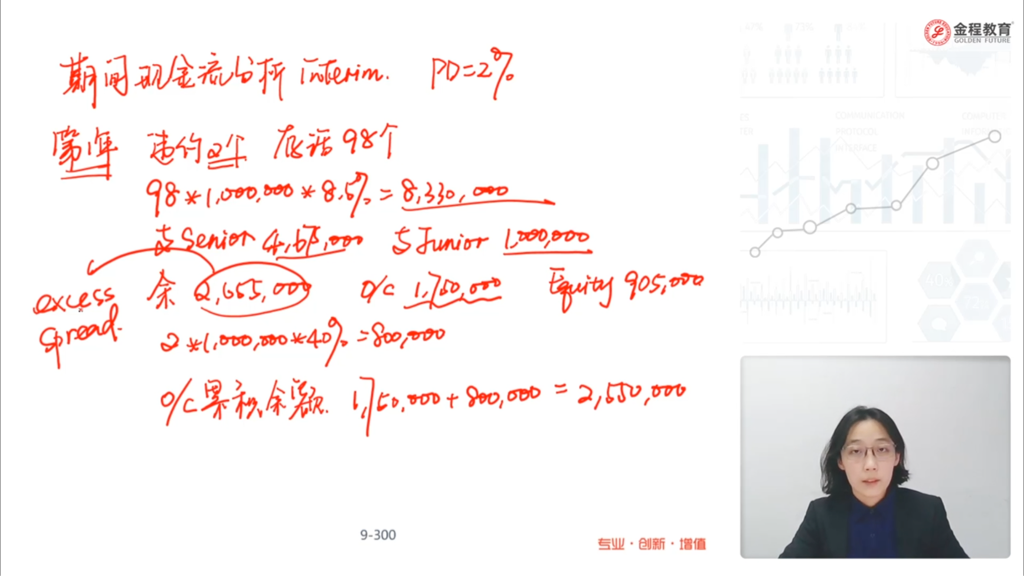 期间现金流分析 interim. PD=2%
第1年 违约2个 存活98个
98*1,000,000*8.5%=8,330,000
与Senior 4,675,000 与Junior 1,000,000
excess spread. 余 2,655,000 O/C 1,750,000 Equity 905,000
2*1,000,000*40%=800,000
O/C累积余额. 1,750,000+800,000=2,550,000
9-300
专业·创新·增值
金程教育
GOLDEN FUTURE